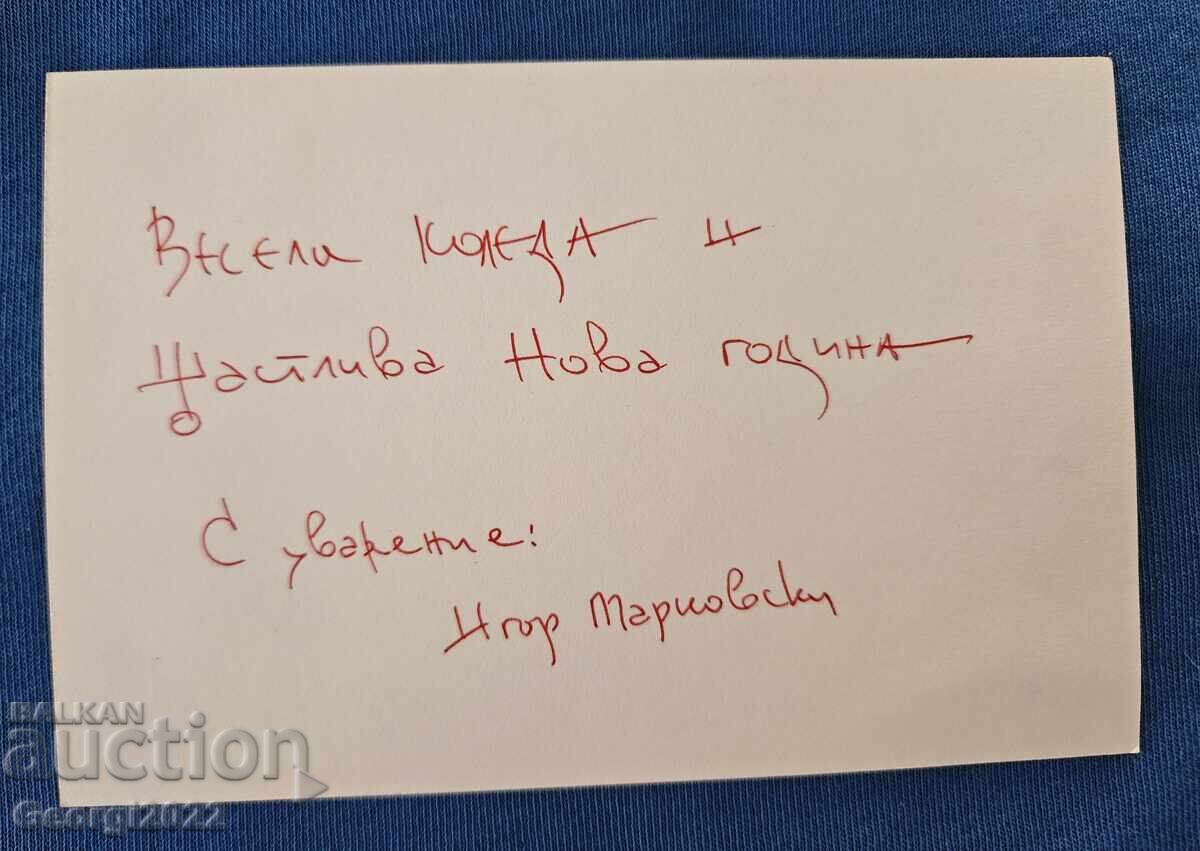 Весели Коледа и
Щастлива Нова година
С уважение:
Игор Марковски
BALKAN
auction
Georgi2022